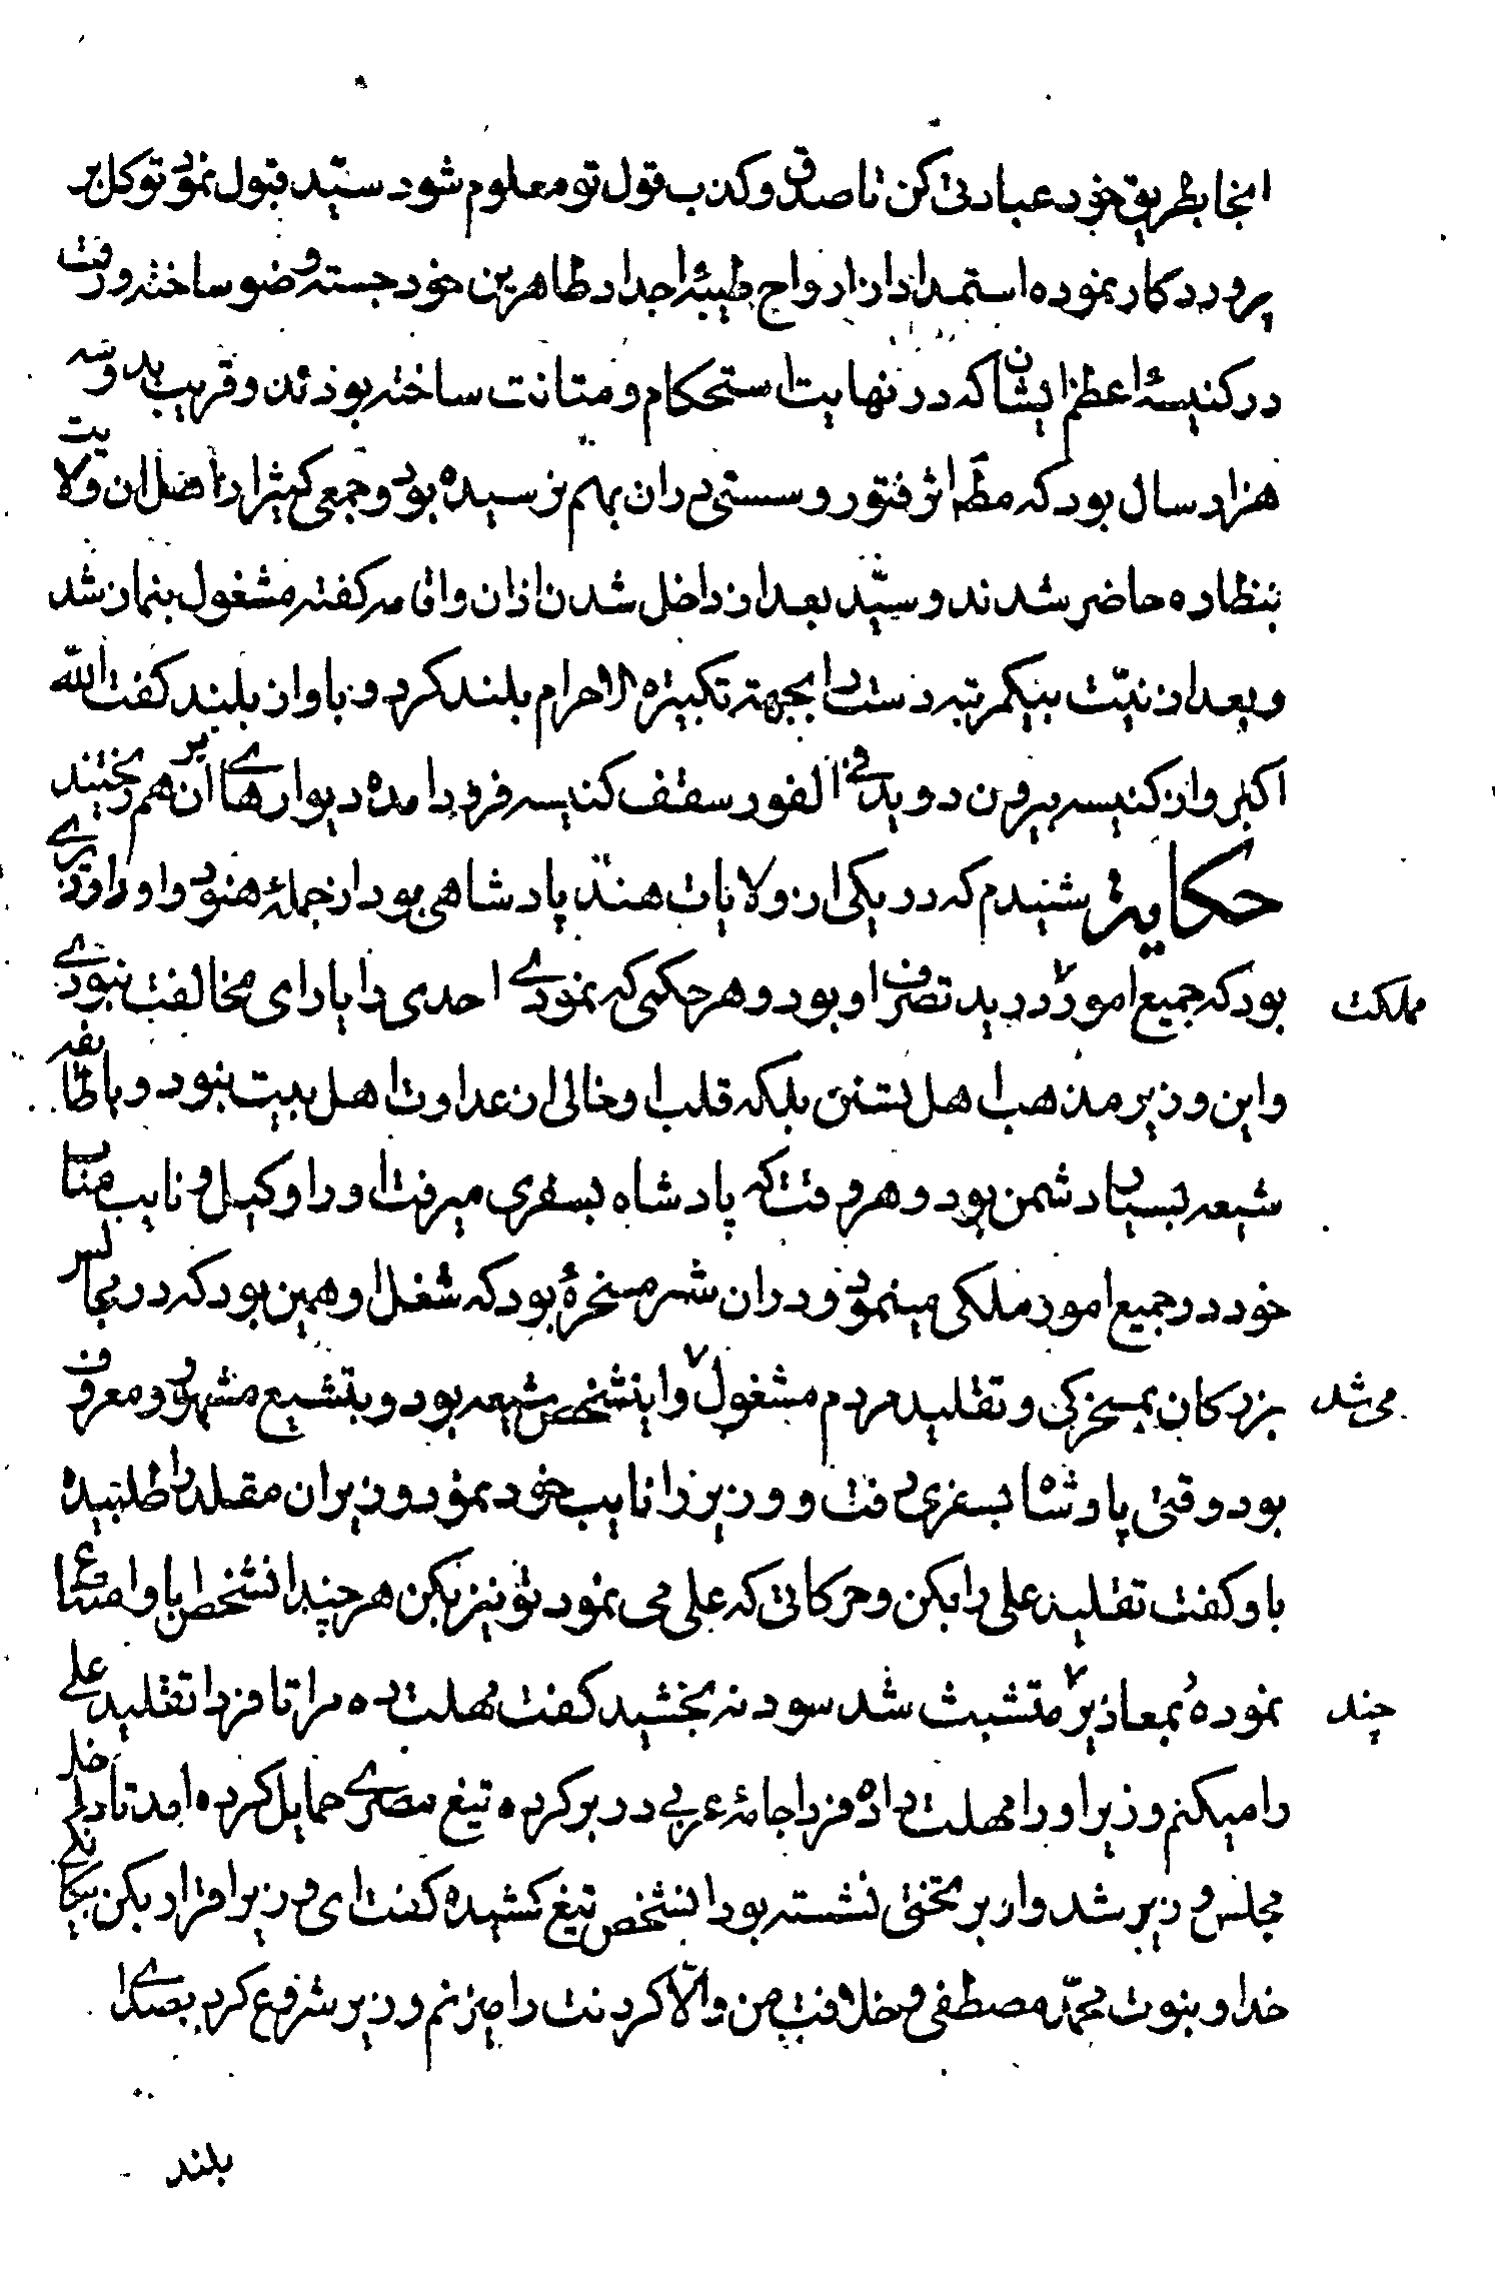 انجا بطریق خود عبادتی کن تا صدق و کذب قول تو معلوم شود سیّد قبول نمود توکل بر
پروردکار نموده استمداد از ارواح طیبهٔ اجداد طاهرین خود جسته وضو ساخته و رفت
در کنیسهٔ اعظم ایشان که در نهایت استحکام و متانت ساخته بودند و قریب بدو سه
هزار سال بود که مظم اثر فتور و سستی در ان بهم نرسیده بود و جمعی کثیر از افاضل ان ولایت
بنظاره حاضر شدند و سیّد بعد از داخل شدن اذان و اقامه کفته مشغول بنماز شد
و بعد از نیّت بیکمرتبه دست را بجهة تکبیرة الاحرام بلند کرد و باواز بلند کفت الله
اکبر و از کنیسه بیرون دوید فی الفور سقف کنیسه فرود امده دیوارهای ان بر هم ریختند
حکایة شنیدم که در یکی از ولایات هند پادشاهی بود از جملهٔ هنود و او را وزیری
بود که جمیع امور مملکت در ید تصرف او بود و هر حکمی که نمودی احدی را یارای مخالفت نبودی
و این وزیر مذهب اهل تسنن بلکه قلب او خالی از عداوت اهل بیت نبود و با طایفه
شیعه بسیار دشمن بود و هر وقت که پادشاه بسفری میرفت او را وکیل و نایب مناب
خود در جمیع امور ملکی مینمود و در ان شهر مسخرهٔ بود که شغل او همین بود که در مجالس
بزرکان بمسخرکی و تقلید مردم مشغول می شد و اینشخص شیعه بود و بتشیع مشهور و معروف
بود وقتی پادشاه بسفری رفت و وزیر را نایب خود نمود وزیر ان مقلد را طلبیده
باو کفت تقلید علی را بکن و حرکاتی که علی می نمود تو نیز بکن هر چند انشخص با و امتناع
نموده بمعاذیر چند متشبث شد سود نه بخشید کفت مهلت ده مرا تا فردا تقلید علی
را میکنم وزیر او را مهلت داده فردا جامهٔ عربی در بر کرده تیغ مصری حمایل کرده امد تا داخل
مجلس وزیر شد و از بر تختی نشسته بود انشخص تیغ کشیده کفت ای وزیر اقرار بکن بیکانکی
خدا و بنبوت محمّد مصطفی و خلافت من والّا کردنت را میزنم وزیر شروع کرد بصدای
بلند